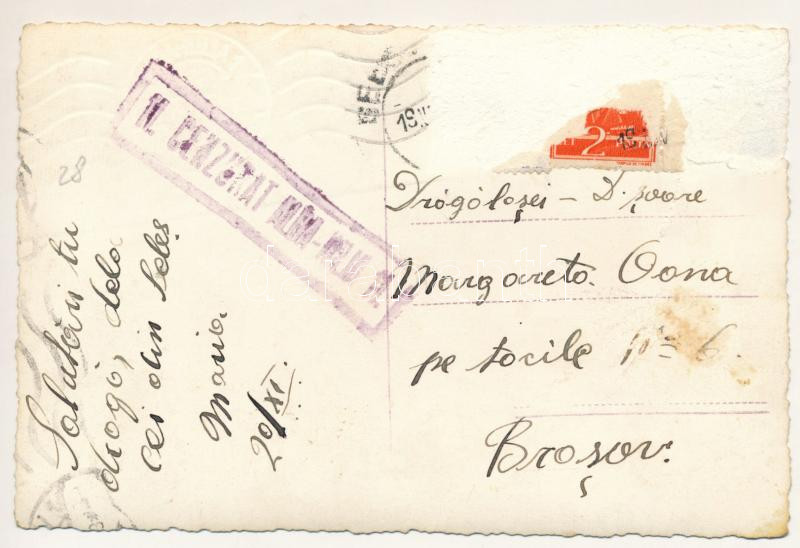 28
Salutări tu
drogó, dela
cei din Seleş
Maria
20/XI.
CENZURAT ALBA-IULIA
2
Drógólaşei – D. şoare
Margareta Oona
pe tocile Nº 6.
Broşov.